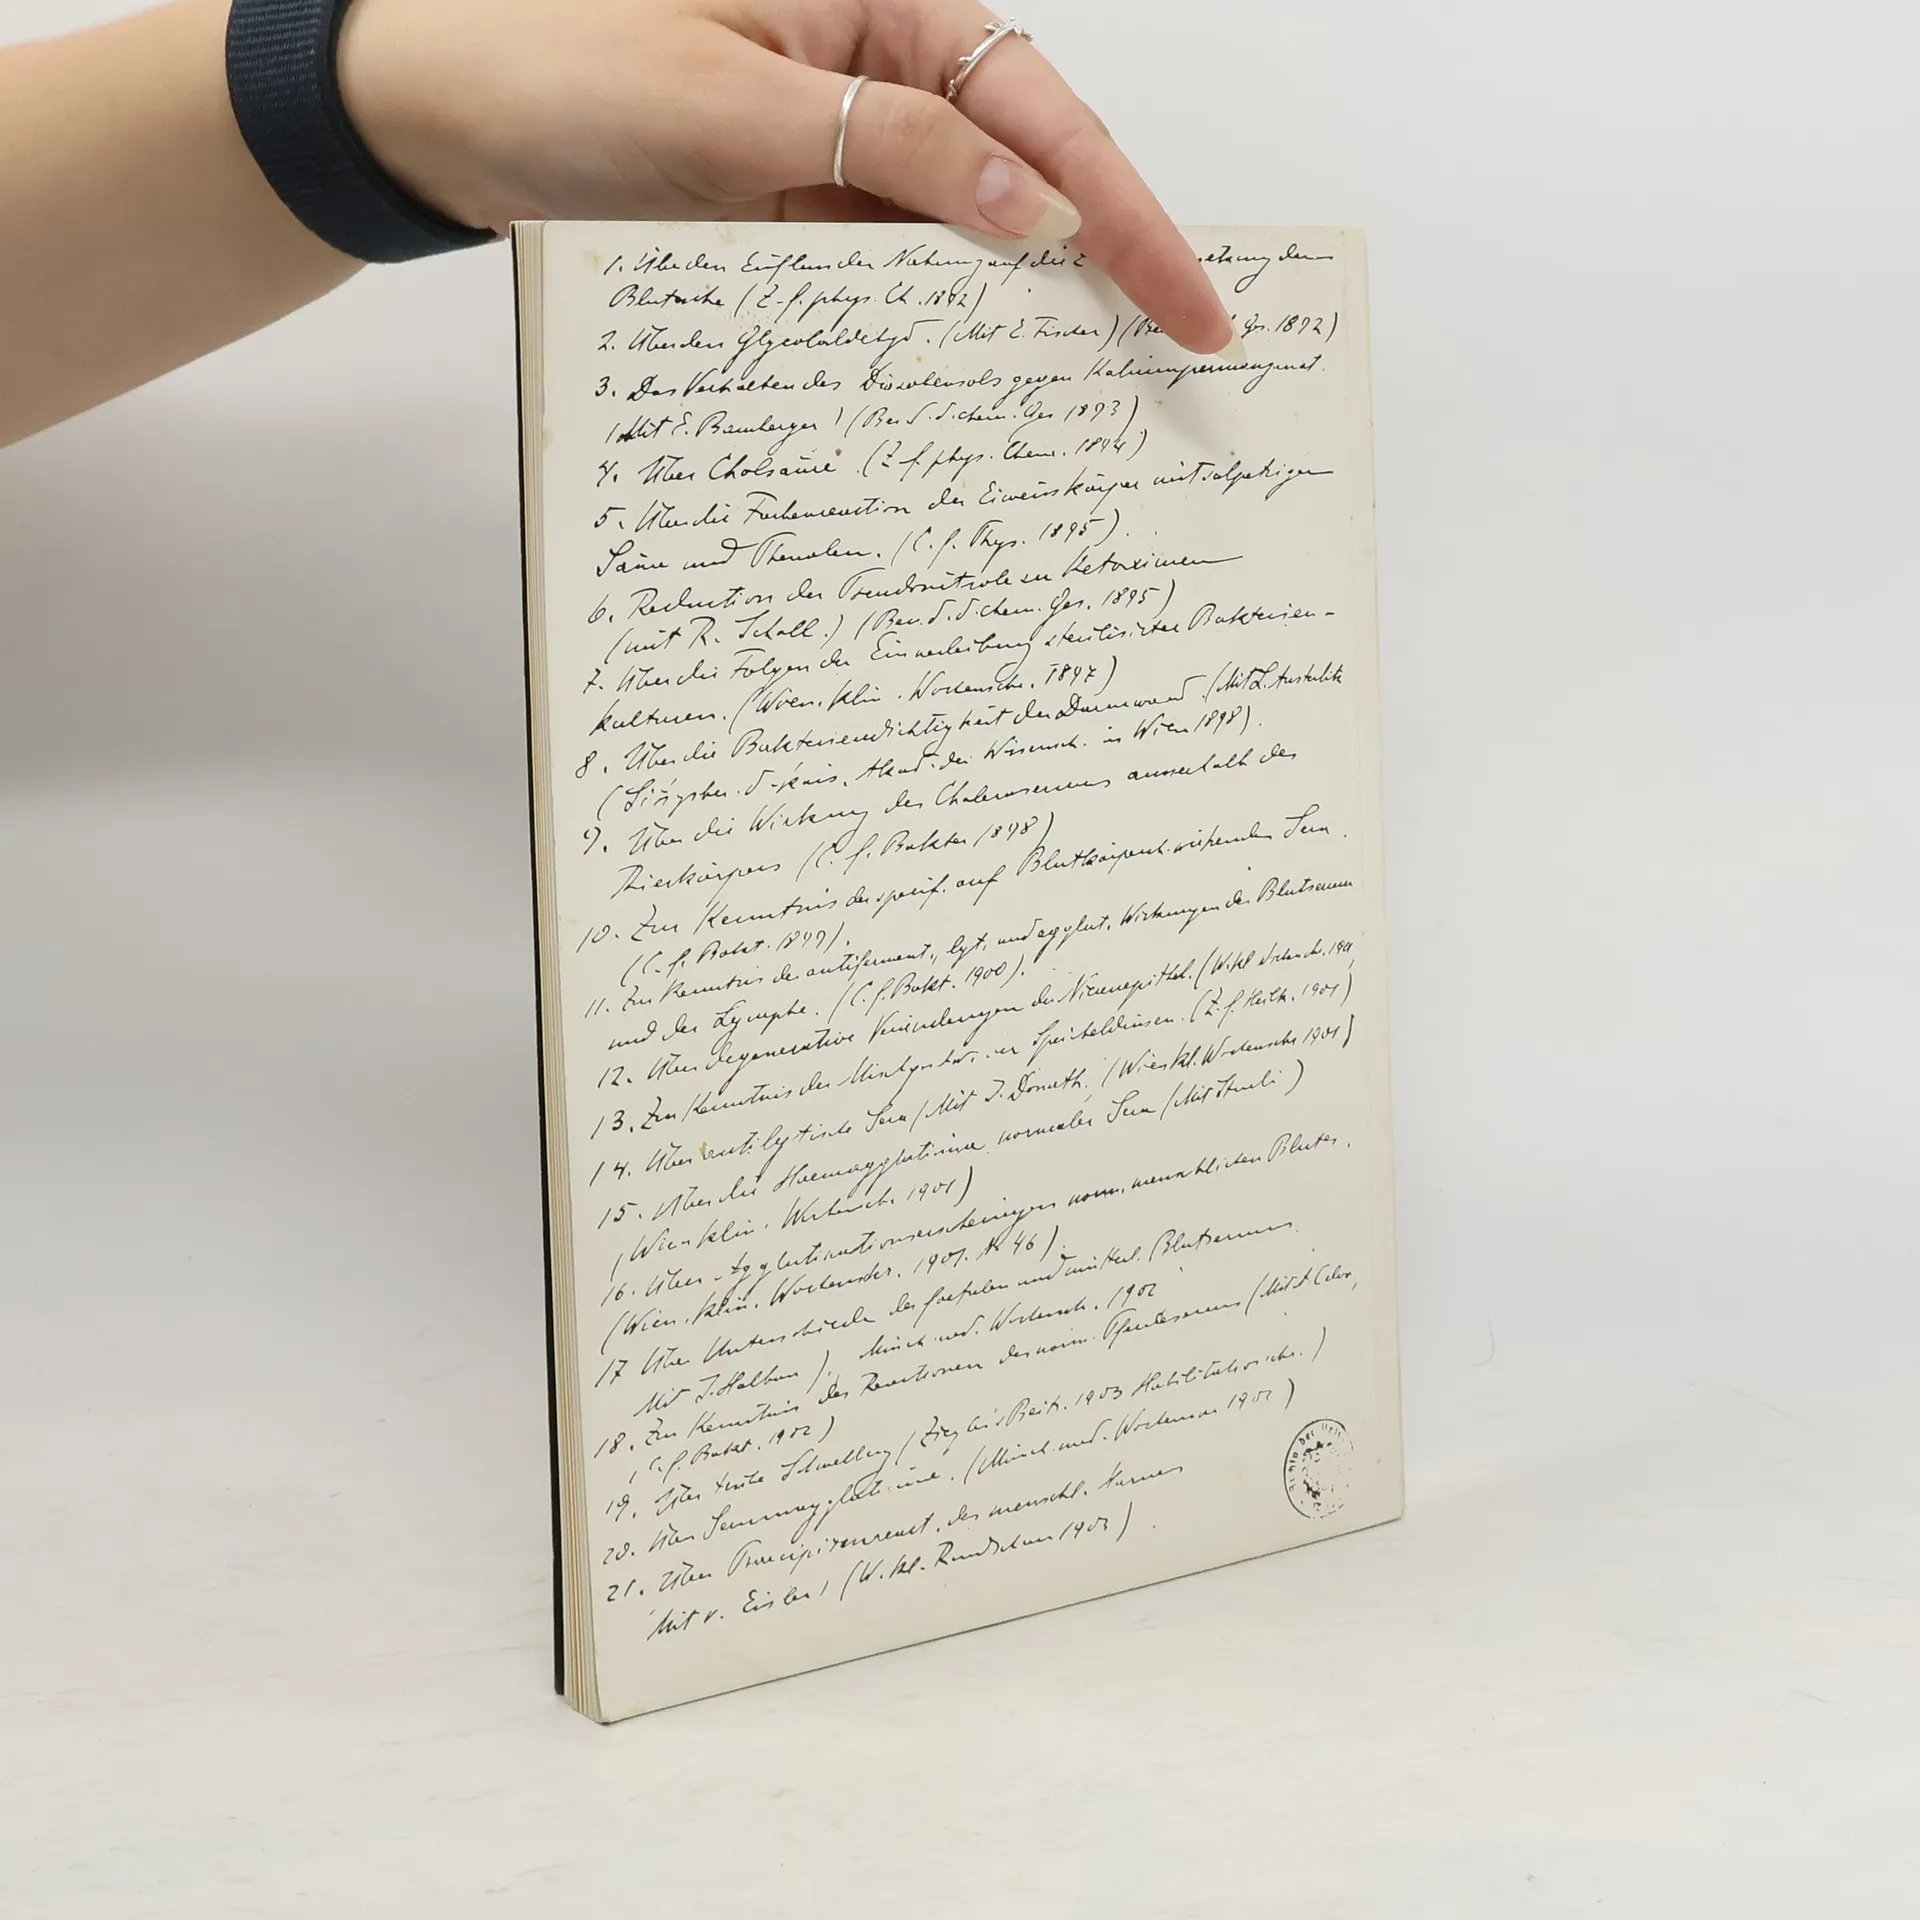 1. Über den Einfluss der Nahrung auf die Z etzung der
Blutasche (Z. f. phys. Ch. 1892)
2. Über den Glycolaldehyd. (Mit E. Fischer) (Be Ges. 1892)
3. Das Verhalten des Diazobenzols gegen Kaliumpermanganat.
(Mit E. Bamberger) (Ber. d. d. chem. Ges 1893)
4. Über Cholsäure (Z. f. phys. Chem. 1894)
5. Über die Farbenreaction der Eiweisskörper mit salpetriger
Säure und Phenolen. (C. f. Phys. 1895).
6. Reduction der Pseudonitrole zu Ketoximen
(mit R. Scholl.) (Ber. d. d. chem. Ges. 1895)
7. Über die Folgen der Einverleibung sterilisirter Bakterien-
kulturen. (Wien. klin. Wochensch. 1897)
8. Über die Bakteriendichtigkeit der Darmwand. (Mit L. Austerlitz
(Sitzgsber. d. kais. Akad. der Wissensch. in Wien 1898).
9. Über die Wirkung des Choleraserums ausserhalb des
Tierkörpers (C. f. Bakter 1898)
10. Zur Kenntnis der specif. auf Blutkörperch. wirkenden Sera.
(C. f. Bakt. 1899).
11. Zur Kenntnis der antiferment., lyt. und agglut. Wirkungen des Blutserum
und der Lymphe. (C. f. Bakt. 1900).
12. Über degenerative Veränderungen der Nierenepithel. (W. kl Wochensch. 1901
13. Zur Kenntnis der Mischgeschw. der Speicheldrüsen. (Z. f. Heilk. 1901)
14. Über antilytische Sera (Mit J. Donath. (Wien kl. Wochenschr 1901)
15. Über die Haemagglutinine normaler Sera (Mit Sturli)
(Wien klin. Wochensch. 1901)
16. Über Agglutinationserscheinungen norm. menschlichen Blutes.
(Wien. klin. Wochenschr. 1901. Nr 46)
17 Über Unterschiede des foetalen und mütterl. Blutserums.
Mit J. Halban), Münch med. Wochensch. 1902
18. Zur Kenntnis der Reactionen des norm. Pferdeserums (Mit A Calvo,
C. f. Bakt. 1902)
19. Über trübe Schwellung (Zieglers Beitr. 1903 Habilitationschr.)
20. Über Serumagglutinine. (Münch. med. Wochenschr 1902)
21. Über Praecipitinreact. des menschl. Harnes
Mit v. Eisler) (W. kl. Rundschau 1903).